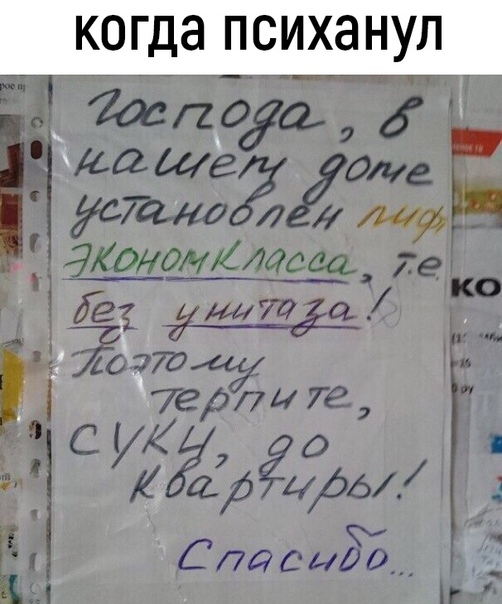 когда психанул
Господа, в
нашем доме
установлен лифт
экономкласса, т.е.
без унитаза!
Поэтому
терпите,
суки, до
квартиры!
Спасибо...
ко